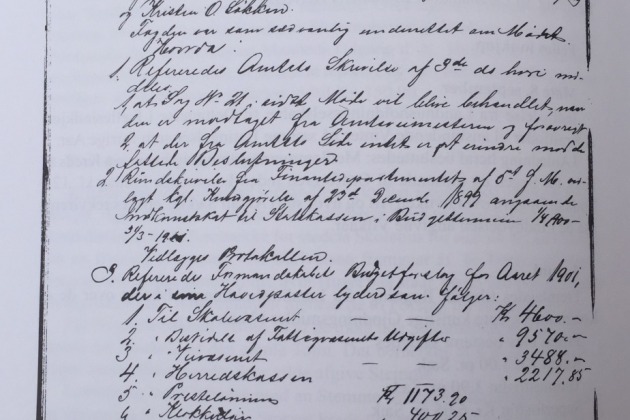 og Kristen O. Løkken.
Fogden var som sædvanlig underrettet om Mødet.
Hvorda:
1. Refereredes Amtets Skrivelse af 3de ds hvori
deles
1, at Sag No 21 i sidste Møde vil blive behandlet, naar
den er modtaget fra Amtsveimesteren og forøvrigt
2, at der fra Amtets Side intet er at erindre mod de
fattede Beslutninger
2 Rundskrivelse fra Finantsdepartementet af 8de f. M. ved-
lagt kgl. Kundgjørelse af 23de Decembe 1899 angaaende
Indkomstskat til Statskassen i Budgetterminen 1/4 1900-
31/3-1901.
Vedlægges Protokollen.
3. Refereredes Formandskabets Budgetforslag for Aaret 1901,
der i sine Hovedposter lyder som følger:
1. Til Skolevæsenet — Kr 4600.-
2. " Bestridelse af Fattigvæsenets Udgifter " 9570.-
3 " Veivæsenet — — " 3488.-
4. " Herredskassen " 2217.85
5 " Prestelønnen Kr 1173.20
6 " Klokkerløn " 400.25